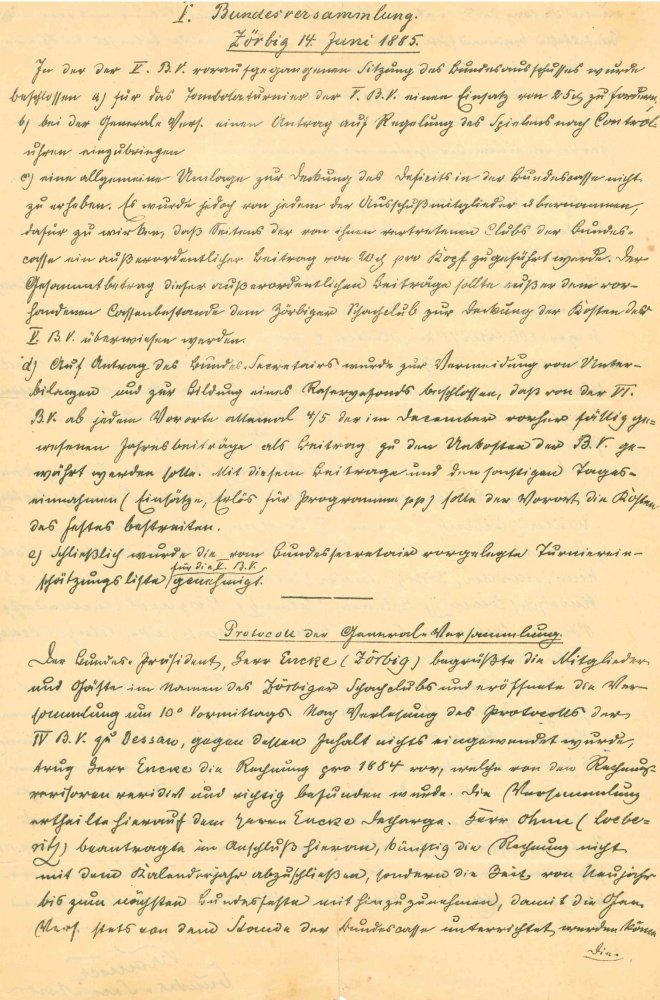 V. Bundesversammlung.
Zörbig 14. Juni 1885.
In der der V. B.V. vorausgegangenen Sitzung des Bundesausschusses wurde
beschlossen a) für das Tombolaturnier der V. B.V. einen Einsatz von 25 zu fordern,
b) bei der General-Vers. einen Antrag auf Regelung des Spielens nach Control-
uhren einzubringen
c) eine allgemeine Umlage zur Deckung des Deficits in der Bundescasse nicht
zu erheben. Es wurde jedoch von jedem der Ausschußmitglieder übernommen,
dafür zu wirken, daß Seitens der von ihnen vertretenen Clubs der Bundes-
casse ein außerordentlicher Beitrag von pro Kopf zugeführt werde. Der
Gesammtbetrag dieser außerordentlichen Beiträge sollte außer dem vor-
handenen Cassenbestande dem Zörbiger Schachclub zur Deckung der Kosten des
V. B.V. überwiesen werden.
d) Auf Antrag des Bundes-Secretairs wurde zur Vermeidung von Unter-
bilanzen und zur Bildung eines Reservefonds beschlossen, daß von der VI.
B.V. ab jedem Vororte allemal 4/5 der im December vorher fällig ge-
wesenen Jahresbeiträge als Beitrag zu den Unkosten der B.V. ge-
währt werden solle. Mit diesem Beitrage und den sonstigen Tages-
einnahmen (Einsätze, Erlös für Programme pp) solle der Vorort die Kosten
des Festes bestreiten.
e) Schließlich wurde die vom Bundessecretair vorgelegte Turnierein-
schätzungsliste für die V. B.V. genehmigt.
Protocoll der General-Versammlung.
Der Bundes-Präsident, Herr Encke (Zörbig) begrüßte die Mitglieder
und Gäste im Namen des Zörbiger Schachclubs und eröffnete die Ver-
sammlung um 10° Vormittags. Nach Verlesung des Protocolls der
IV B.V. zu Dessau, gegen dessen Inhalt nichts eingewendet wurde,
trug Herr Encke die Rechnung pro 1884 vor, welche von den Rechnungs-
revisoren revidirt und richtig befunden wurde. Die Versammlung
ertheilte hierauf dem Herrn Encke Decharge. Herr Ohme (Loebe-
ritz) beantragte im Anschluß hieran, künftig die Rechnung nicht
mit dem Kalenderjahr abzuschließen, sondern die Zeit von Neujahr
bis zum nächsten Bundesfeste mit hinzuzunehmen, damit die Gen.
Vers. stets von dem Stande der Bundescasse unterrichtet werden könne
Die-